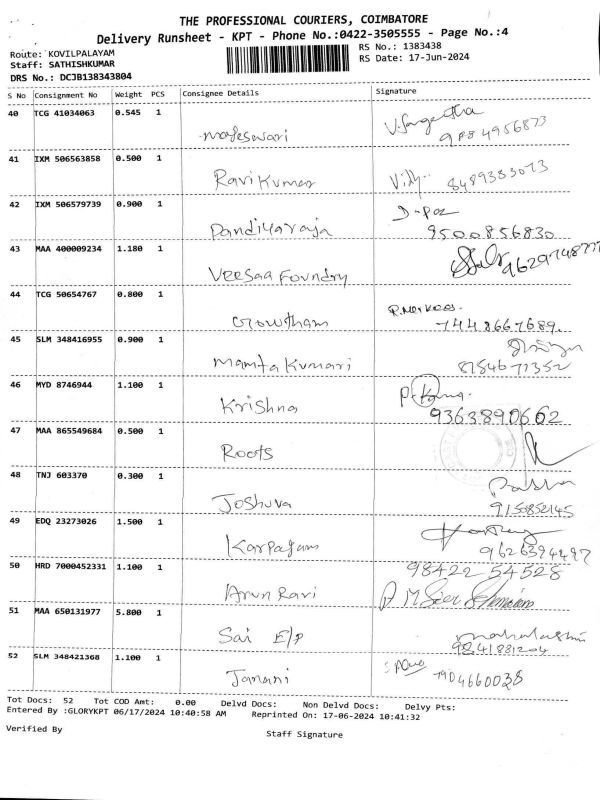 THE PROFESSIONAL COURIERS, COIMBATORE
Delivery Runsheet - KPT - Phone No.:0422-3505555 - Page No.:4
Route: KOVILPALAYAM
RS No.: 1383438
Staff: SATHISHKUMAR
RS Date: 17-Jun-2024
DRS No.: DCJB138343804
S No Consignment No Weight PCS Consignee Details Signature
40 TCG 41034063 0.545 1
V. Sangeetha
maheswari 9884956873
41 IXM 506563858 0.500 1
Ravi Kumar 8489383073
42 IXM 506579739 0.900 1
Pandiyaraja 9500856830
43 MAA 400009234 1.180 1
Veesaa Foundry
44 TCG 50654767 0.800 1
Gowtham 7448667689
45 SLM 348416955 0.900 1
Mamta Kumari 8754671352
46 MYD 8746944 1.100 1
Krishna 9363890662
47 MAA 865549684 0.500 1
Roots
48 TNJ 603370 0.300 1
Joshuva
49 EDQ 23273026 1.500 1
Karpagam 9626394497
50 HRD 7000452331 1.100 1 98422 54528
Arun Ravi
51 MAA 650131977 5.800 1
Sai E/P mahalakshmi
9841881204
52 SLM 348421368 1.100 1
Janani 7904660038
Tot Docs: 52 Tot COD Amt: 0.00 Delvd Docs: Non Delvd Docs: Delvy Pts:
Entered By :GLORYKPT 06/17/2024 10:40:58 AM Reprinted On: 17-06-2024 10:41:32
Verified By
Staff Signature